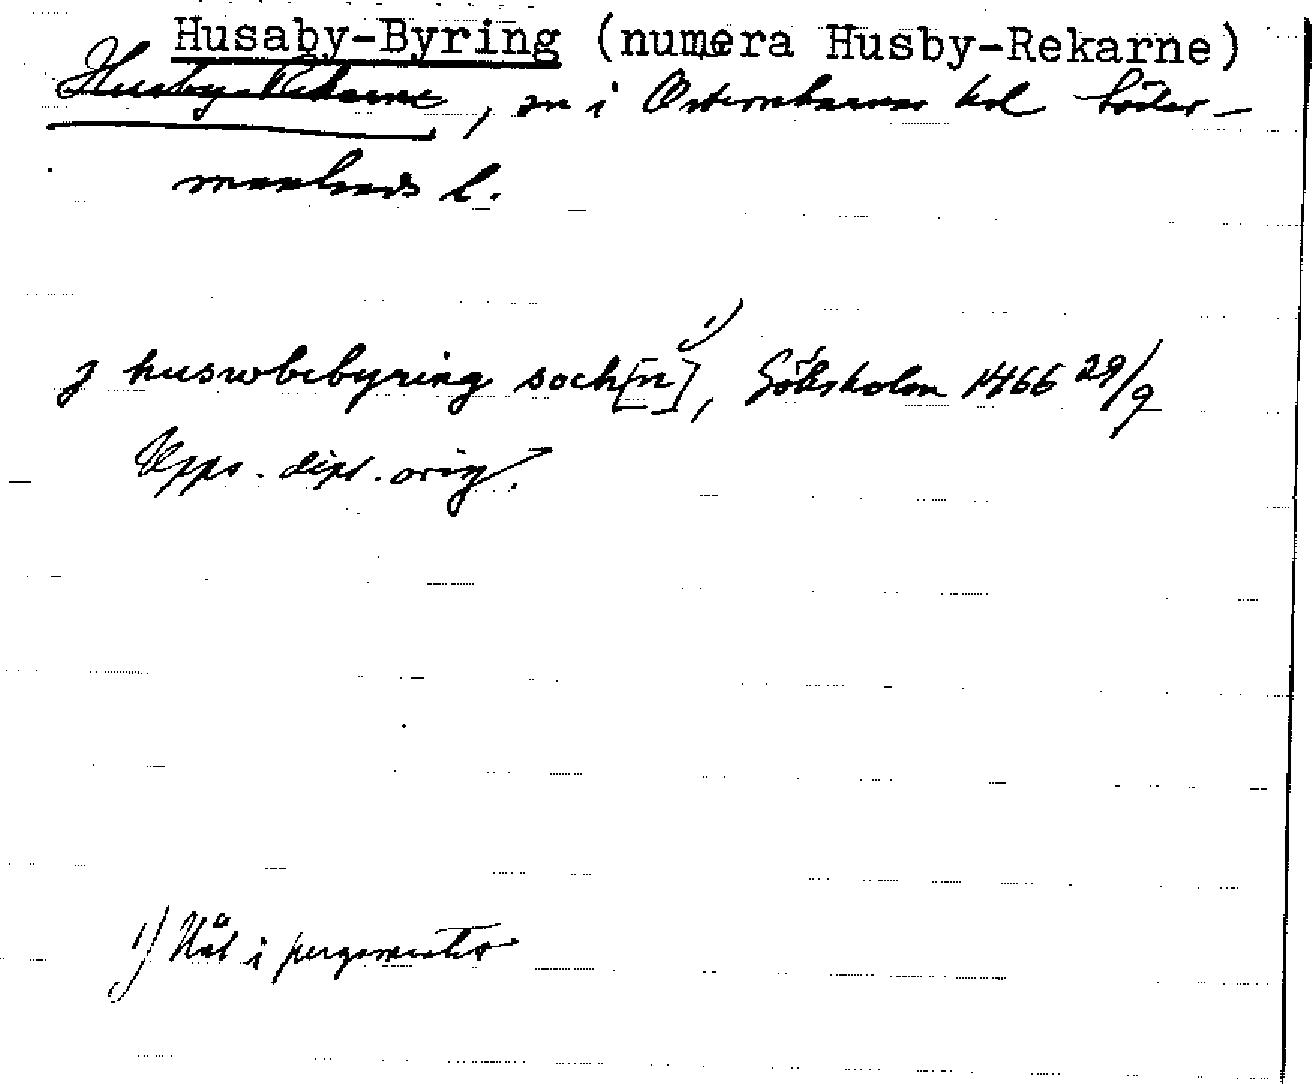 Husaby-Byring (numera Husby-Rekarne)
Husby-Rekarne, sn i Österrekarnes hd Söder-
manlands l.
j huswbebyring soch[n]¹⁾, Göksholm 1466 29/9
Upps. dipl. orig.
1) Hål i pergamentet